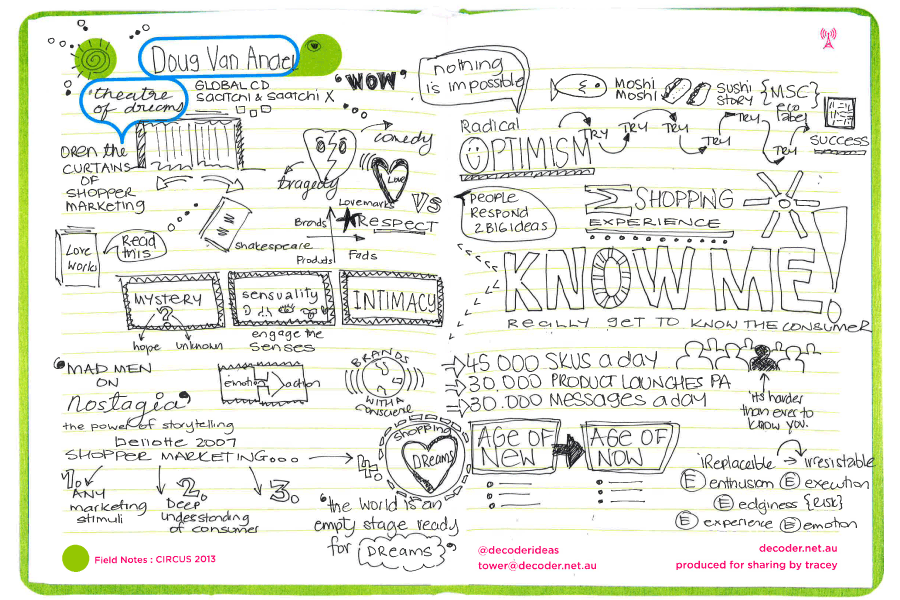 Doug Van Andel
GLOBAL CD
SAATCHI & SAATCHI X
"theatre
of dreams
OPEN the
CURTAINS
OF
SHOPPER
MARKETING
"WOW"
comedy
tragedy
Love
Lovemarks
VS
RESPECT
Brands
Products
Fads
shakespeare
Love
Works
Read
this
MYSTERY
?
hope unknown
sensuality
engage the
SENSES
INTIMACY
"MAD MEN
ON
nostagia"
the power of storytelling
emotion action
BRANDS
WITH A
CONSCIENCE
Deliotte 2007
SHOPPER MARKETING...
1.
ANY
marketing
stimuli
2.
Deep
understanding
of consumer
3.
4.
Shopping
DREAMS
"the world is an
empty stage ready
for DREAMS"
Field Notes : CIRCUS 2013
nothing
is impossible
MOSHI
MOSHI
SUSHI
STORY
{MSC}
eco
label
Radical
OPTIMISM
TRY
TRY
TRY
TRY
TRY
TRY
SUCCESS
PEOPLE
RESPOND
2 BIG ideas
SHOPPING
EXPERIENCE
KNOW ME!
REALLY GET TO KNOW THE CONSUMER
45 000 SKUS a day
30.000 PRODUCT LAUNCHES PA
30.000 Messages a day
"its harder
than ever to
know you.
AGE OF
New
AGE OF
NOW
iReplaceible → irresistable
E enthusism E execution
E edginess {RISK}
E experience E emotion
@decoderideas
tower@decoder.net.au
decoder.net.au
produced for sharing by tracey